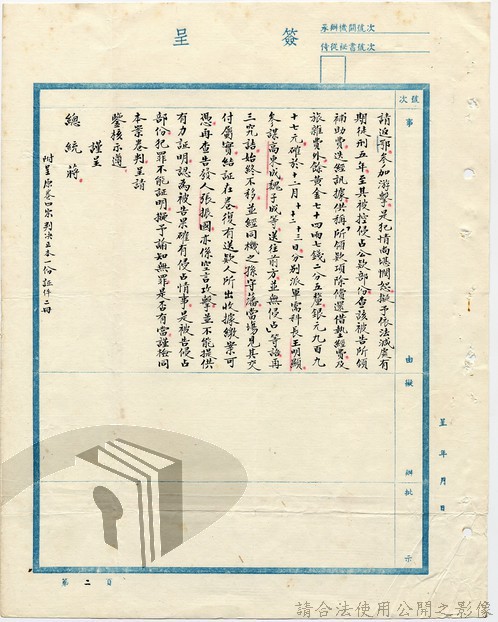 簽呈
承辦機關號次
傳從祕書號次
號次
事由
擬辦
批示
請返鄂參加游擊是犯情尚堪憫恕擬予依法減處有
期徒刑五年至其被控侵占公款部份查該被告所領
補助費迭經訊據供稱所領款項除償還借墊經費及
旅雜費外餘黃金七十四兩七錢二分五釐銀元九百九
十七元確於十一月十二十三日分別派軍需科長王明顯
參謀高東成魏子成等送往前方並無侵占等語再
三究詰始終不移並經同機之孫守藩當場見其交
付屬實結証在卷復有送款人所出收據繳案可
憑再查告發人張振國亦係空言攻擊並不能提供
有力証明認為被告果確有侵占情事是被告侵占
部份犯罪不能証明擬予諭知無罪是否有當謹檢同
本案卷判呈請
鑒核示遵
謹呈
總統蔣
附呈原卷四宗判決正本一份証件二冊
呈 年 月 日
第二頁
請合法使用公開之影像